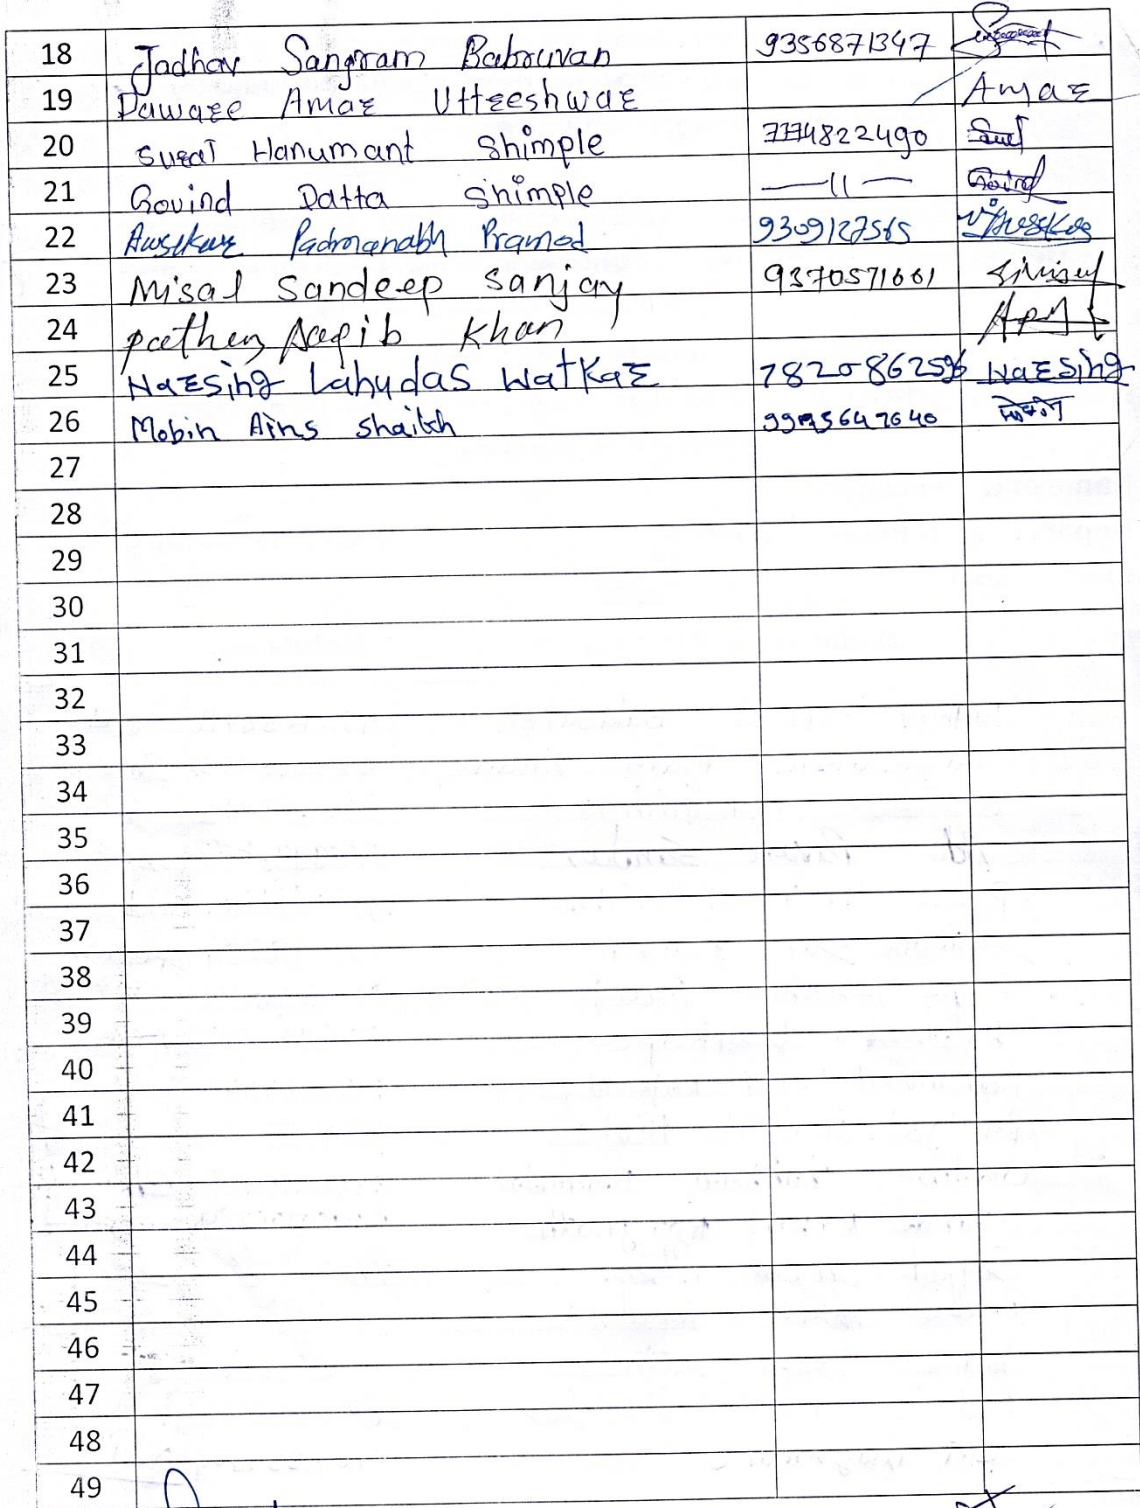 18 Jadhav Sangram Babruvan 9356871347
19 Pawaree Amar Utreeshwar Amar
20 Suraj Hanumant Shimple 7774822490
21 Govind Datta Shimple —11— Govind
22 Padmanabh Pramod 9309127565
23 Misal Sandeep Sanjay 9370571661
24 Khan
25 Narsing Lahudas Watkar 7820862596 Narsing
26 Mobin Ains Shaikh
27
28
29
30
31
32
33
34
35
36
37
38
39
40
41
42
43
44
45
46
47
48
49